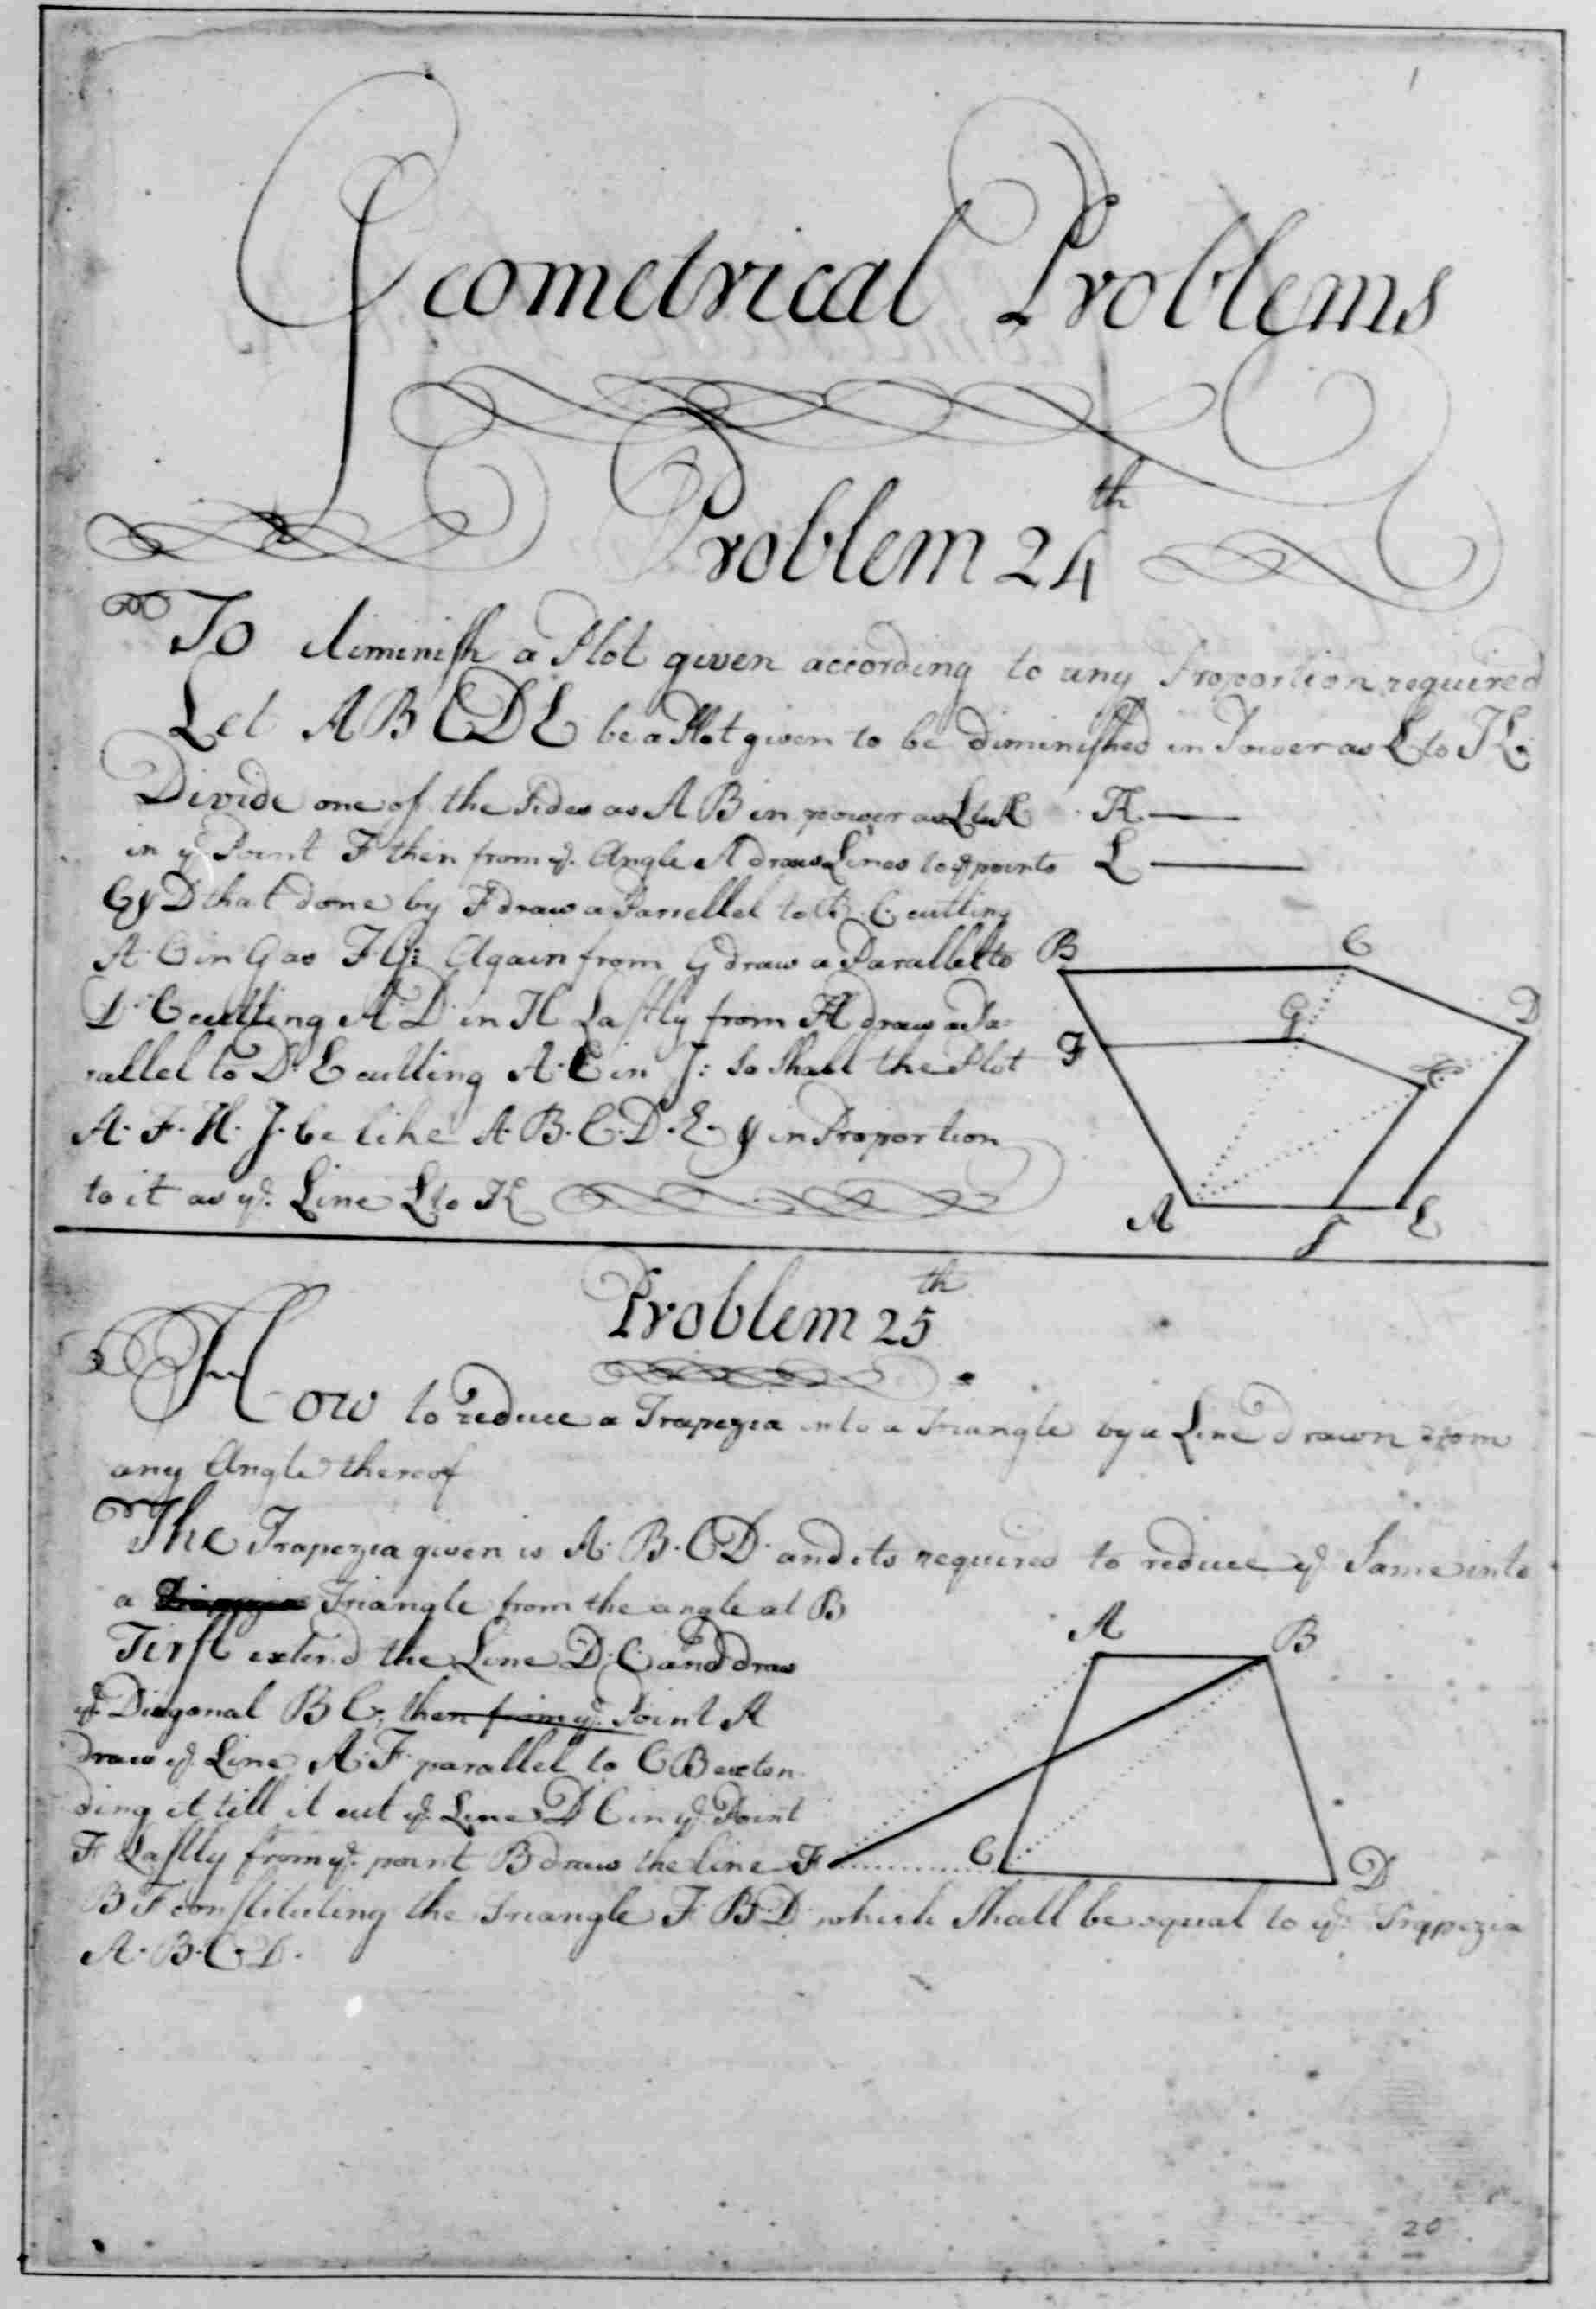 Geometrical Problems
Problem 24th
To diminish a Plot given according to any Proportion required
Let A B C D E be a Plot given to be diminished in Power as L to K
Divide one of the Sides as A B in power as L to K
K
in ye Point F then from ye Angle A draw Lines to ye points
L
C & D that done by F draw a Parrellel to B. C. cutting
A. C in G as F. G: Again from G draw a Parallel to
D. C cutting A D in H Lastly from H draw a Pa=
rallel to D. E cutting A. E in J: So Shall the Plot
A. F. H. J. be like A. B. C. D. E. & in Proportion
to it as ye Line L to K
B
C
D
G
F
H
A
J
E
Problem 25th
How to reduce a Trapezia into a Triangle by a Line drawn from
any Angle thereof
The Trapezia given is A. B. C D. and its required to reduce ye Same into
a Triangle from the angle at B
First extend the Line D. C. and draw
ye Diagonal B C, then from ye Point A
draw ye Line A. F parallel to C B exten
ding it till it cut ye Line D C in ye Point
F Lastly from ye point B draw the line
B F constituting the Triangle F. B. D which Shall be equal to ye Trapezia
A. B. C. D.
A
B
F
C
D
20